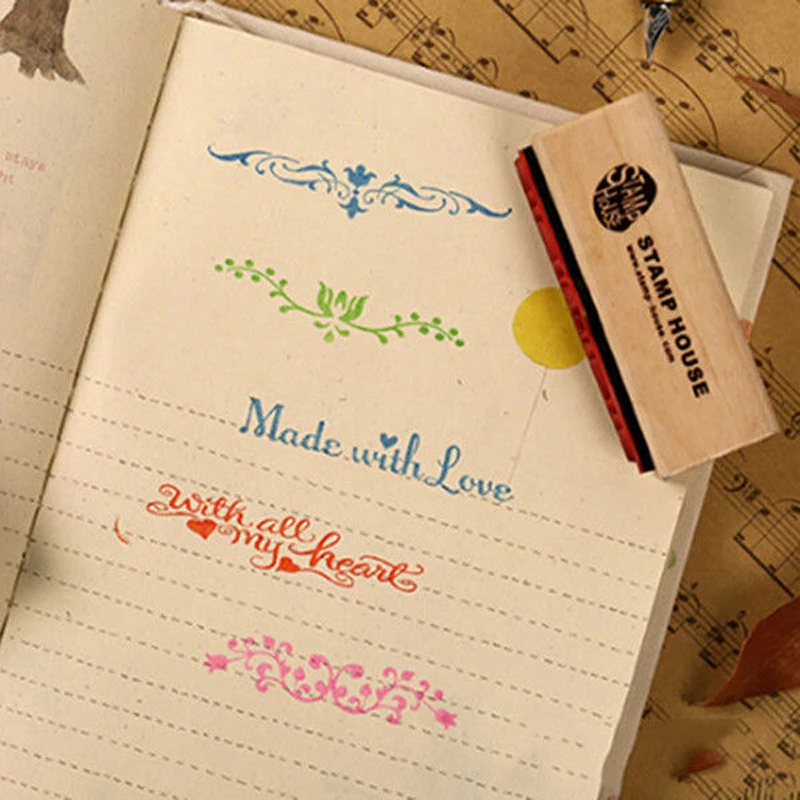 stays
ht
Made with Love
With all
my heart
STAMP
HOUSE
STAMP HOUSE
www.stamp-house.com